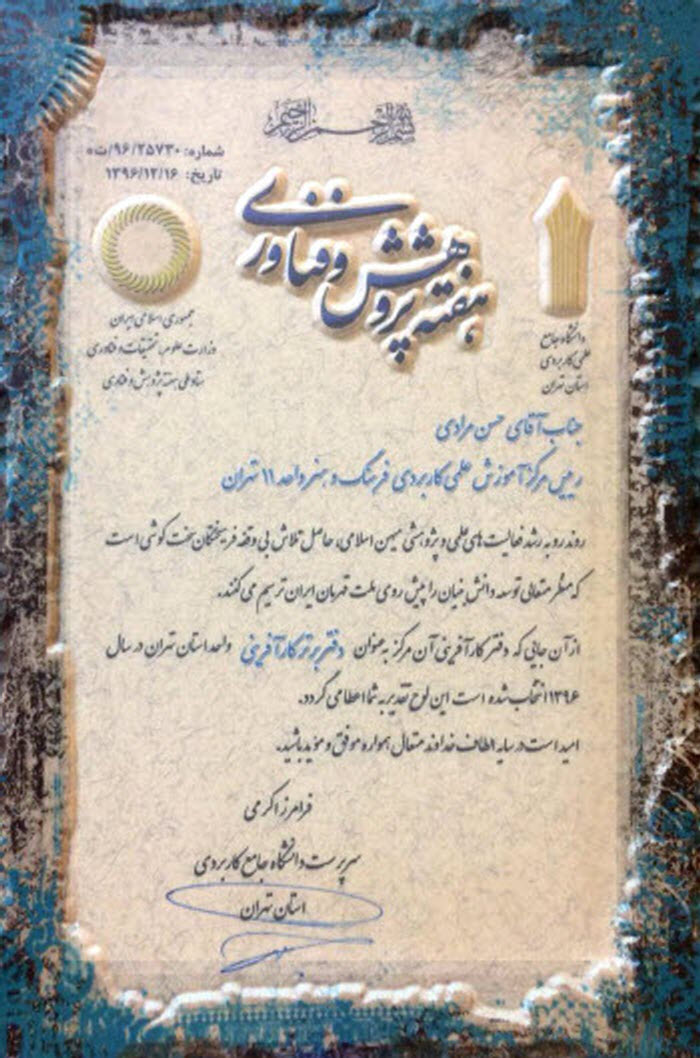 بسم الله الرحمن الرحیم
شماره: ۹۶/۲۵۷۳۰/ت۵
تاریخ: ۱۳۹۶/۱۲/۱۶
هفته پژوهش و فناوری
جمهوری اسلامی ایران
وزارت علوم، تحقیقات و فناوری
ستاد ملی هفته پژوهش و فناوری
دانشگاه جامع
علمی کاربردی
استان تهران
جناب آقای حسن مرادی
رییس مرکز آموزش علمی کاربردی فرهنگ و هنر واحد ۱۱ تهران
روند رو به رشد فعالیت های علمی و پژوهشی میهن اسلامی، حاصل تلاش بی وقفه فرهیختگان سخت کوشی است
که منظر متعالی توسعه دانش بنیان را پیش روی ملت قهرمان ایران ترسیم می کنند.
از آن جایی که دفتر کارآفرینی آن مرکز به عنوان دفتر برتر کارآفرینی واحد استان تهران در سال
۱۳۹۶ انتخاب شده است این لوح تقدیر به شما اعطا می گردد.
امید است در سایه الطاف خداوند متعال همواره موفق و مؤید باشید.
فرامرز اکرمی
سرپرست دانشگاه جامع کاربردی
استان تهران